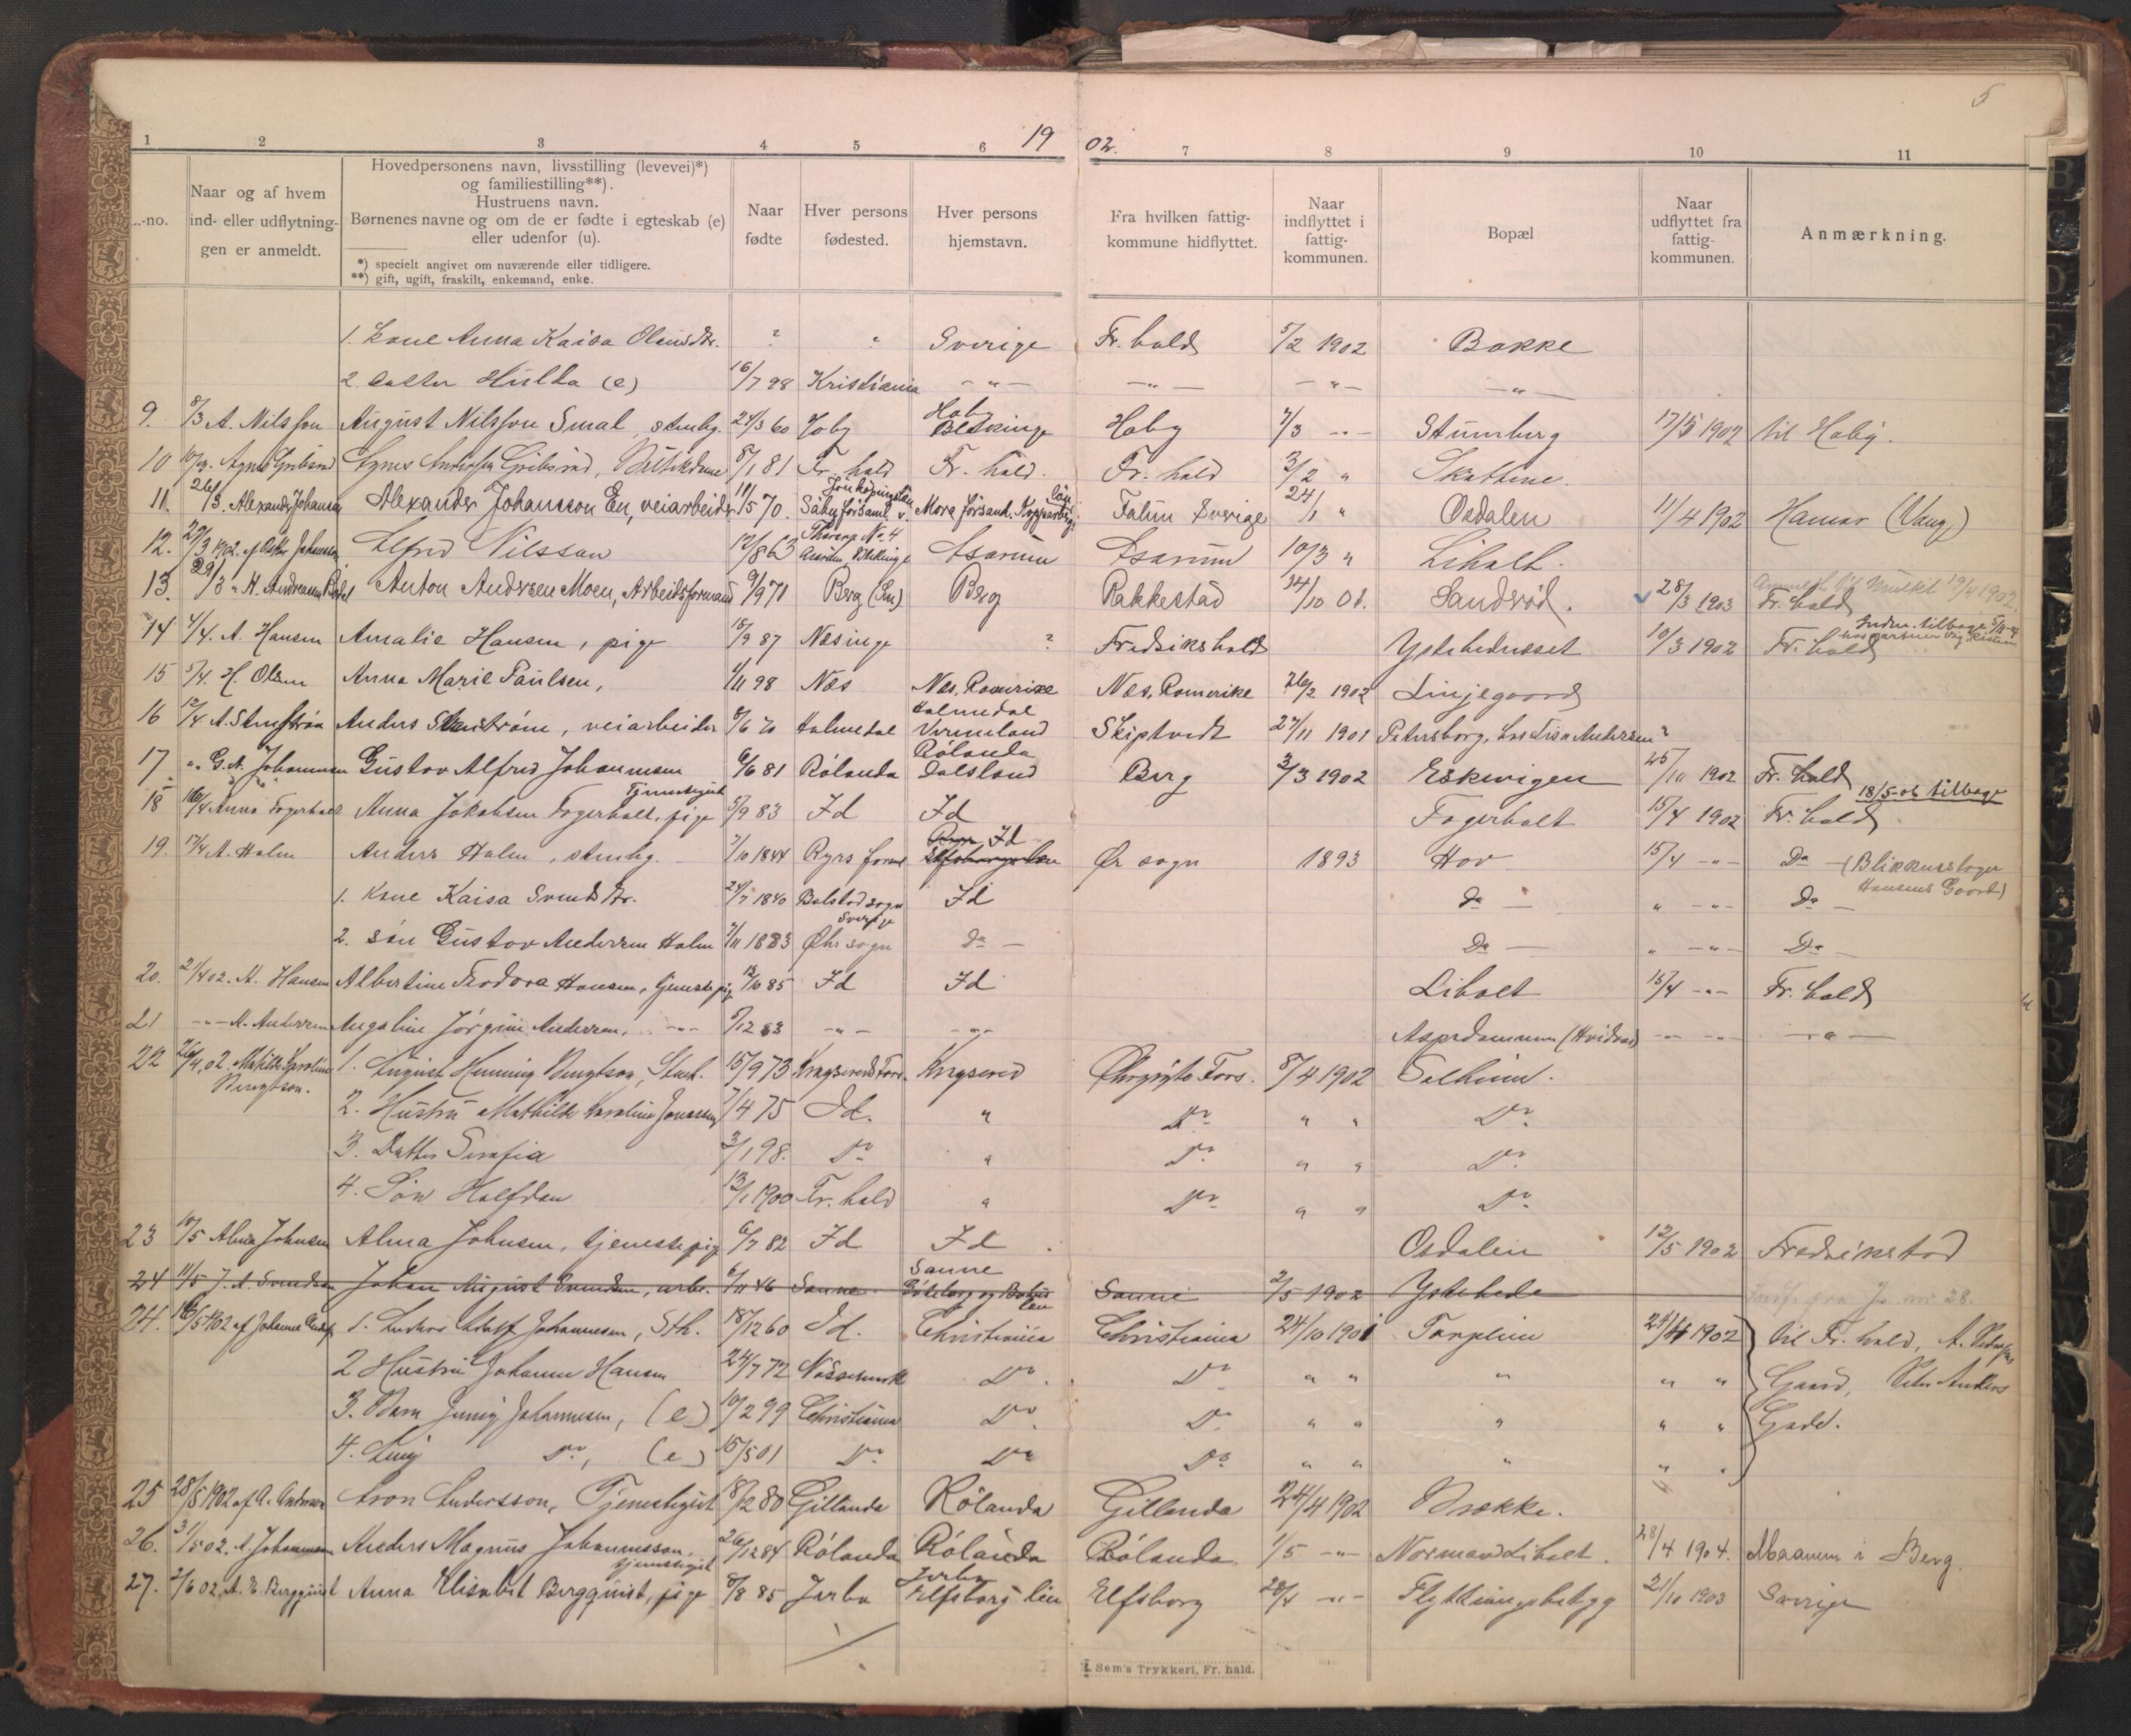 5
19 02.
1 2 3 4 5 6 7 8 9 10 11
-no.
Naar og af hvem ind- eller udflytningen er anmeldt.
Hovedpersonens navn, livsstilling (levevei)*)
og familiestilling**).
Hustruens navn.
Børnenes navne og om de er fødte i egteskab (e)
eller udenfor (u).
*) specielt angivet om nuværende eller tidligere.
**) gift, ugift, fraskilt, enkemand, enke.
Naar fødte
Hver persons fødested.
Hver persons hjemstavn.
Fra hvilken fattigkommune hidflyttet.
Naar indflyttet i fattigkommunen.
Bopæl
Naar udflyttet fra fattigkommunen.
Anmærkning.
1. kone Anna Kaisa Olausdtr. ? " Sverige Fr.hald 5/2 1902 Bakke
2. datter Hulda (e) 16/7 98 Kristiania -"- -"- -"- -"-
9. 8/3 A. Nilsson August Nilsson Smal, stenhg. 24/3 60 Hoby Hoby Blekinge Hoby 7/3 -"- Stumberg 17/5 1902 til Hoby.
10 Fr. hald Fr. hald. Fr. hald 3/2 " Skattene
11. 26/3. Alexander Johansson Alexander Johansson En, veiarbeider 70. Säby församl. Jönköpings län Mora församl. Kopparberg län Falun Sverige 24/1 " Osdalen 11/4 1902 Hamar (Vang)
12. 29/3 1902. af Nilsson 12/8 63 Asarum Blekinge Asarum Asarum 10/3 " Liholt.
13. 29/3 " Anton Andersen Moen, Arbeidsformand 9/9 71 Berg (Sm). Berg Rakkestad 14/10 01. Sandrød. 28/3 1903 Fr. hald
14 4/4. A. Hansen Amalie Hansen, pige 87 Næsinge ? Fredrikshald Ystehedusset 10/3 1902 Fr. hald Indm. tilbage
15 5/4. H. Olsen Anna Marie Paulsen, 1/11 98 Næs Nes, Romerike Næs, Romerike 26/2 1902 Linjegaard
16 12/4 A. Stenstrøm Anders Stenstrøm, veiarbeider 8/6 70 Holmedal Holmedal Vermland Skiptvedt 27/11 1901 Petersborg, hos Lisa Andersen?
17 -"- G. A. Johannesen Gustav Alfred Johannesen 6/6 81 Rölanda Rölanda Dalsland Berg 3/3 1902 Eskevigen 1902 Fr. hald
18 16/4 Anna Fagerholt Anna Jakobsen Fagerholt, pige Tjenestepige 5/9 83 Id Id Fagerholt 15/4 1902 Fr. hald 18/5-02 tilbage
19. 17/4 A. Holm Anders Holm, stenhg. 7/10 1844 Ryrs Id Ør sogn 1893 Hov 15/4 -"- Do (Blikkenslager Hansens Gaard)
1. Kone Kaisa Svendsdtr. 24/7 1840 Bolstad sogn Sverige Id Do " -"- Do
2. søn Gustav Andersen Holm 7/11 1883 Øhr sogn do Do " -"- Do
20. 21/4 02. A. Hansen Albertine Teodora Hansen, tjenestepig 13/10 85 Id Id Liholt 15/4 -"- Fr. hald
21 -"- A. Andersen Angeline Jørgine Andersen. -"- 5/12 83 -"- -"- Aspedammen -"- -"- -"-
22 26/4, 02. Mathilde Karoline Bengtson. 1. August Henning Bengtson, Stenh. 15/9 73 Krogsered Fors. 8/4 1902 Solheim.
2. Hustru Mathilde Karoline 7/4 75 Id. " Do " " Do
3. Datter Serafia 3/1 98. Do " Do " " Do
4. Søn Halfdan 13/1 1900 Fr. hald " Do " " Do
23 10/5 Alma Johnsen Alma Johnsen, tjenestepig 6/7 82 Id Id Osdalen 12/5 1902 Fredrikstad
24 11/5 J. A. Svendsen Johan August Svendsen, arbr. 6/11 46 Sanne Sanne Göteborg og Bohus län Sanne 2/5 1902 Ystehede
24. 16/5 1902 af Johanne 1. Adolf Johannesen, Sth. 18/12 60 Id. Christiania Christiania 24/10 1901 Torplien 1902 til Fr. hald,
2 Hustru Johanne Hansen 24/7 72 Do. Do " " " " " Gaard, Peder Anders
3. Barn Johannesen, (e) 10/2 99 Christiania Do. Do. " " " " " Gade.
4. Do, (e) 15/5 01 Do Do Do " " " " "
25 28/5 1902 af A. Andersson Aron Andersson, Tjenestegut 8/2 80 Gillanda Rölanda Gillanda 24/4 1902 Brække.
26. 31/5 02. A. Johannesson Anders Magnus Johannesson, tjenestegut 26/12 84 Rölanda Rölanda Rölanda 1/5 -"- Liholt. 28/4 1904. Maanem i Berg.
27. 2/6 02. A. E. Bergquist Anna Elisabet Bergquist, pige 8/8 85 Jerbo Jerbo Elfsborg län Elfsborg 28/4 -"- 21/10 1903 Sverige
E. Sem's Trykkeri, Fr. hald.